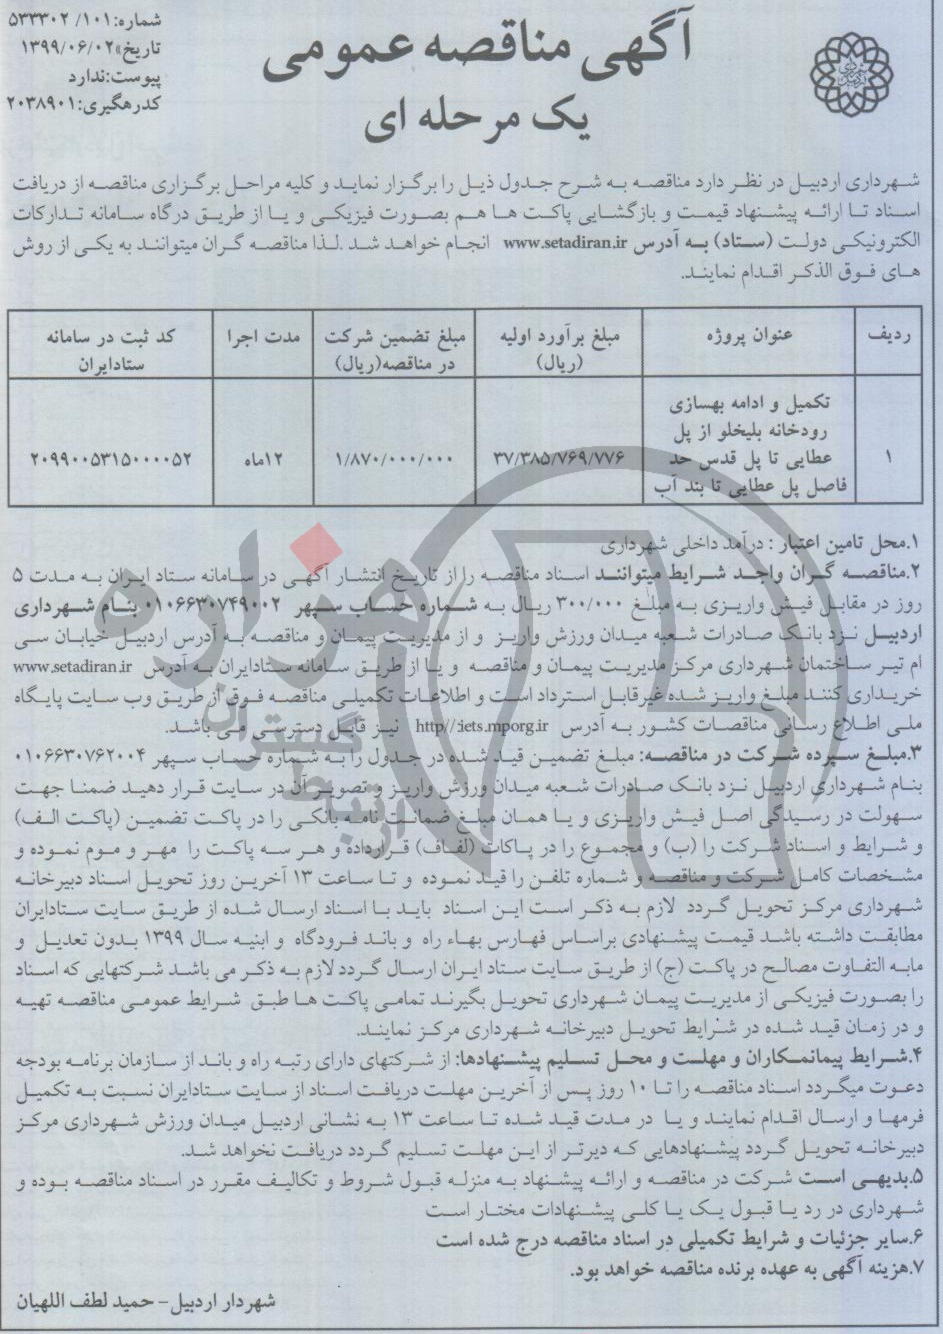 شماره: ۱۰۱/ ۵۳۳۳۰۲
تاریخ»۱۳۹۹/۰۶/۰۲
پیوست:ندارد
کدرهگیری:۲۰۳۸۹۰۱
آگهی مناقصه عمومی
یک مرحله ای
شهرداری اردبیل در نظر دارد مناقصه به شرح جدول ذیل را برگزار نماید و کلیه مراحل برگزاری مناقصه از دریافت
اسناد تا ارائه پیشنهاد قیمت و بازگشایی پاکت ها هم بصورت فیزیکی و یا از طریق درگاه سامانه تدارکات
الکترونیکی دولت (ستاد) به آدرس www.setadiran.ir انجام خواهد شد .لذا مناقصه گران میتوانند به یکی از روش
های فوق الذکر اقدام نمایند.
ردیف عنوان پروژه مبلغ برآورد اولیه (ریال) مبلغ تضمین شرکت در مناقصه(ریال) مدت اجرا کد ثبت در سامانه ستادایران
۱ تکمیل و ادامه بهسازی رودخانه بلیخلو از پل عطایی تا پل قدس حد فاصل پل عطایی تا بند آب ۳۷/۳۸۵/۷۶۹/۷۷۶ ۱/۸۷۰/۰۰۰/۰۰۰ ۱۲ماه ۲۰۹۹۰۰۵۳۱۵۰۰۰۰۵۲
۱.محل تامین اعتبار : درآمد داخلی شهرداری
۲.مناقصه گران واجد شرایط میتوانند اسناد مناقصه را از تاریخ انتشار آگهی در سامانه ستاد ایران به مدت ۵
روز در مقابل فیش واریزی به مبلغ ۳۰۰/۰۰۰ ریال به شماره حساب سپهر ۰۱۰۶۶۳۰۷۴۹۰۰۲ بنام شهرداری
اردبیل نزد بانک صادرات شعبه میدان ورزش واریز و از مدیریت پیمان و مناقصه به آدرس اردبیل خیابان سی
ام تیر ساختمان شهرداری مرکز مدیریت پیمان و مناقصه و یا از طریق سامانه ستادایران به آدرس www.setadiran.ir
خریداری کنند مبلغ واریز شده غیرقابل استرداد است و اطلاعات تکمیلی مناقصه فوق از طریق وب سایت پایگاه
ملی اطلاع رسانی مناقصات کشور به آدرس http//:iets.mporg.ir نیز قابل دسترسی می باشد.
۳.مبلغ سپرده شرکت در مناقصه: مبلغ تضمین قید شده در جدول را به شماره حساب سپهر ۰۱۰۶۶۳۰۷۶۲۰۰۴
بنام شهرداری اردبیل نزد بانک صادرات شعبه میدان ورزش واریز و تصویر آن در سایت قرار دهید ضمنا جهت
سهولت در رسیدگی اصل فیش واریزی و یا همان مبلغ ضمانت نامه بانکی را در پاکت تضمین (پاکت الف)
و شرایط و اسناد شرکت را (ب) و مجموع را در پاکات (لفاف) قرارداده و هر سه پاکت را مهر و موم نموده و
مشخصات کامل شرکت و مناقصه و شماره تلفن را قید نموده و تا ساعت ۱۳ آخرین روز تحویل اسناد دبیرخانه
شهرداری مرکز تحویل گردد لازم به ذکر است این اسناد باید با اسناد ارسال شده از طریق سایت ستادایران
مطابقت داشته باشد قیمت پیشنهادی براساس فهارس بهاء راه و باند فرودگاه و ابنیه سال ۱۳۹۹ بدون تعدیل و
مابه التفاوت مصالح در پاکت (ج) از طریق سایت ستاد ایران ارسال گردد لازم به ذکر می باشد شرکتهایی که اسناد
را بصورت فیزیکی از مدیریت پیمان شهرداری تحویل بگیرند تمامی پاکت ها طبق شرایط عمومی مناقصه تهیه
و در زمان قید شده در شرایط تحویل دبیرخانه شهرداری مرکز نمایند.
۴.شرایط پیمانمکاران و مهلت و محل تسلیم پیشنهادها: از شرکتهای دارای رتبه راه و باند از سازمان برنامه بودجه
دعوت میگردد اسناد مناقصه را تا ۱۰ روز پس از آخرین مهلت دریافت اسناد از سایت ستادایران نسبت به تکمیل
فرمها و ارسال اقدام نمایند و یا در مدت قید شده تا ساعت ۱۳ به نشانی اردبیل میدان ورزش شهرداری مرکز
دبیرخانه تحویل گردد پیشنهادهایی که دیرتر از این مهلت تسلیم گردد دریافت نخواهد شد.
۵.بدیهی است شرکت در مناقصه و ارائه پیشنهاد به منزله قبول شروط و تکالیف مقرر در اسناد مناقصه بوده و
شهرداری در رد یا قبول یک یا کلی پیشنهادات مختار است
۶.سایر جزئیات و شرایط تکمیلی در اسناد مناقصه درج شده است
۷.هزینه آگهی به عهده برنده مناقصه خواهد بود.
شهردار اردبیل- حمید لطف اللهیان
هزاره
گسترش
ارتباط